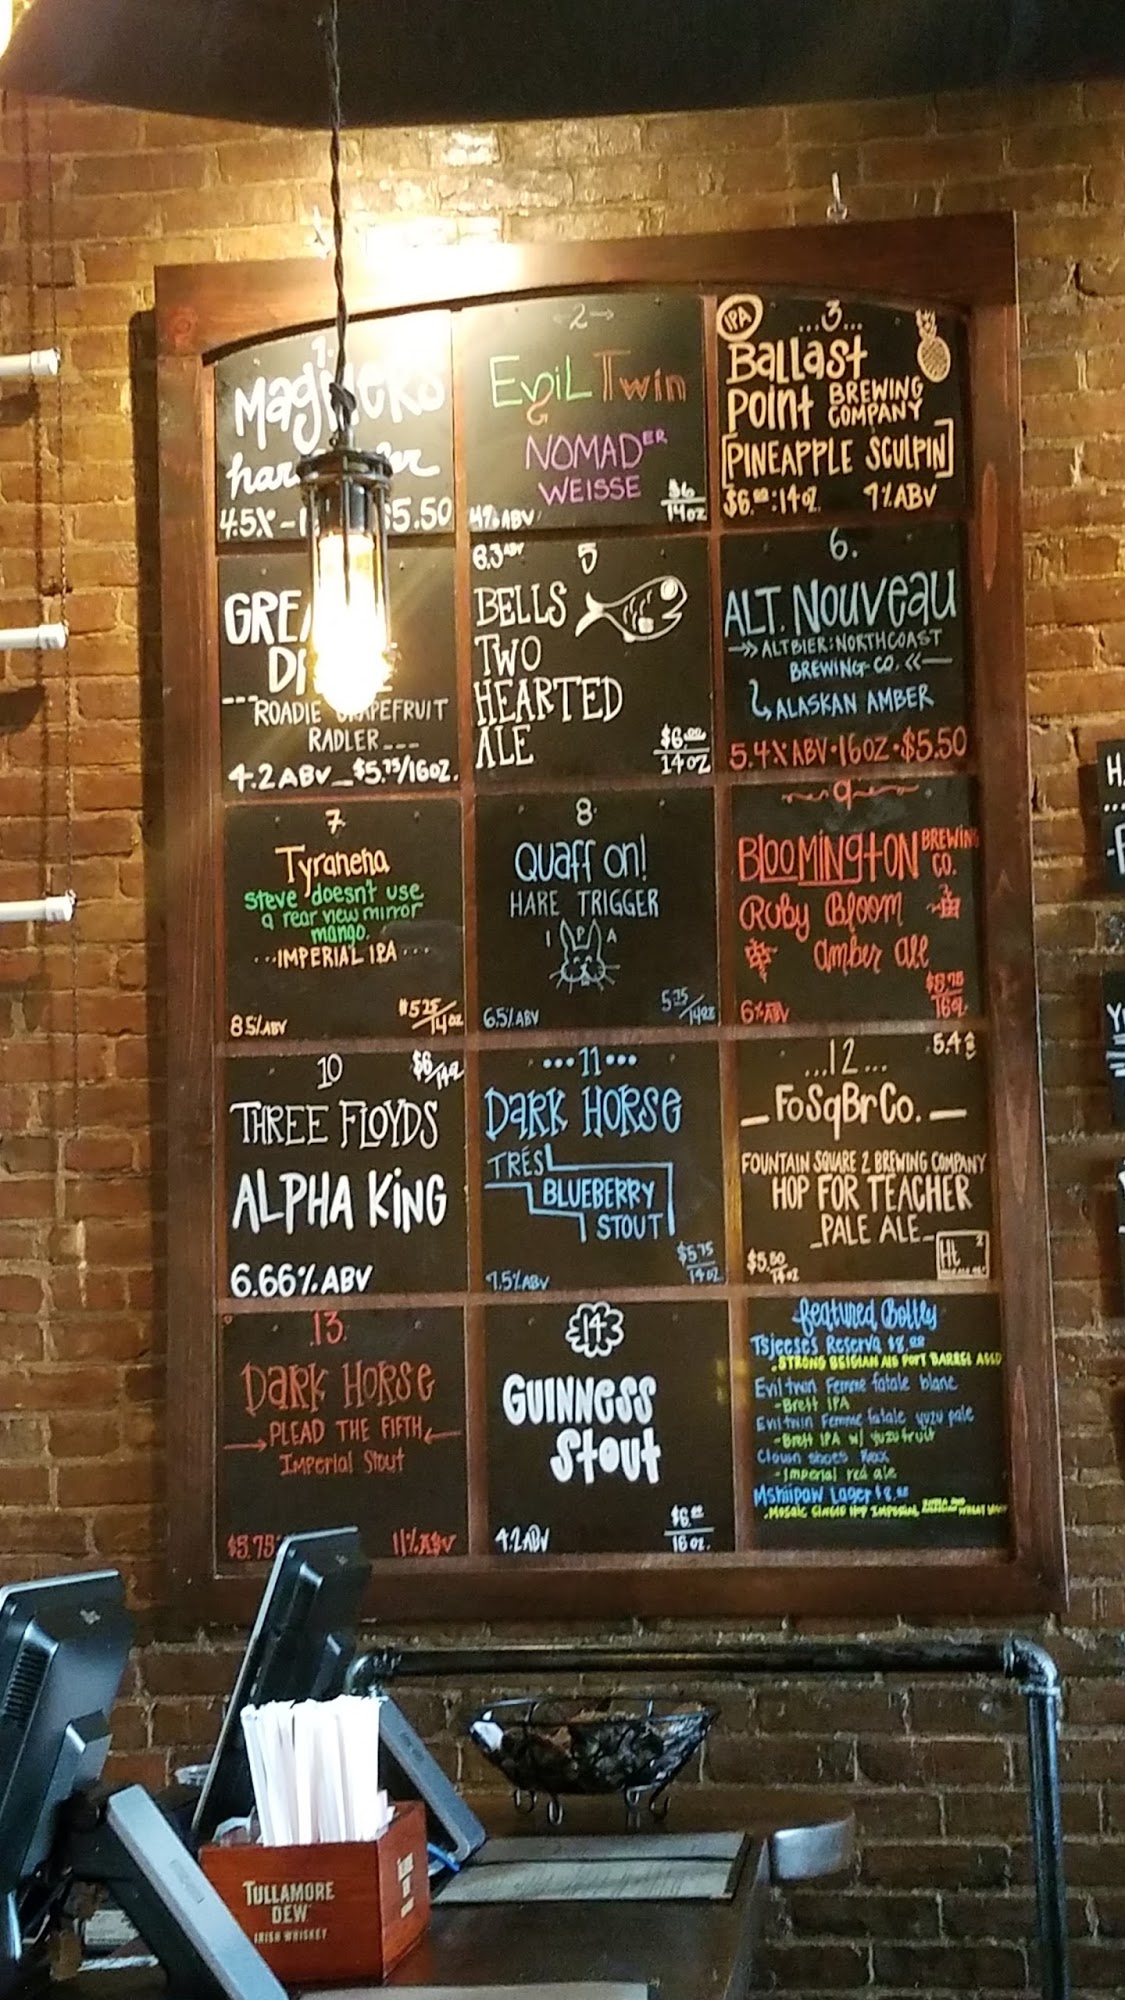 1.
Magners
hard
4.5% - $5.50
2
Evil Twin
NOMADER
WEISSE
4% ABV
$6
14oz
IPA
...3...
Ballast
Point BREWING
COMPANY
[PINEAPPLE SCULPIN]
$6.00:14oz. 7% ABV
GREAT
DI
---ROADIE GRAPEFRUIT
RADLER---
4.2 ABV_$5.75/16oz.
6.3 ABV 5
BELLS
TWO
HEARTED
ALE
$6.00
14oz
6.
ALT. NOUVEAU
ALTBIER: NORTHCOAST
BREWING CO.
ALASKAN AMBER
5.4% ABV•16oz•$5.50
7
Tyranena
Steve doesn't use
a rear view mirror
mango.
...IMPERIAL IPA...
8.5% ABV
$5.25/14oz
8
QUAFF ON!
HARE TRIGGER
I P A
6.5% ABV
5.75/14oz
9
BLOOMINGTON BREWING
CO.
Ruby Bloom
Amber Ale
6% ABV
$5.75
16oz.
10
$6/14oz
THREE FLOYDS
ALPHA KING
6.66% ABV
...11...
DARK HORSE
TRÉS
BLUEBERRY
STOUT
7.5% ABV
$5.75
14oz
...12... 5.4
_FoSqBrCo._
FOUNTAIN SQUARE 2 BREWING COMPANY
HOP FOR TEACHER
_PALE ALE_
$5.50
14oz
Ht 2
13
DARK HORSE
PLEAD THE FIFTH
Imperial Stout
$5.75
11% ABV
14
GUINNESS
Stout
4.2 ABV
$6.00
16oz.
Featured Bottles
Tsjeeses Reserva $8.00
-STRONG BELGIAN ALE PORT BARREL AGED
Evil twin Femme fatale blanc
-Brett IPA
Evil twin Femme fatale yuzu pale
-Brett IPA w/ yuzu fruit
Clown shoes Rex
-Imperial red ale
Mshiipaw Lager $8.00
-MOSAIC SINGLE HOP IMPERIAL WHEAT
TULLAMORE
DEW
IRISH WHISKEY